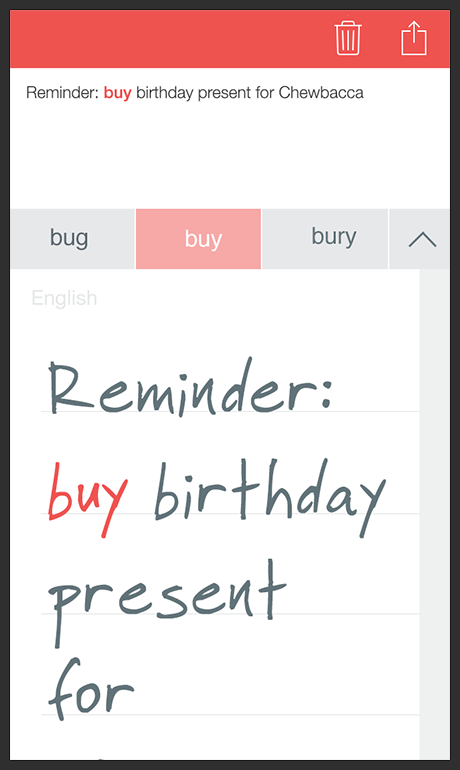 Reminder: buy birthday present for Chewbacca
bug buy bury
English
Reminder:
buy birthday
present
for